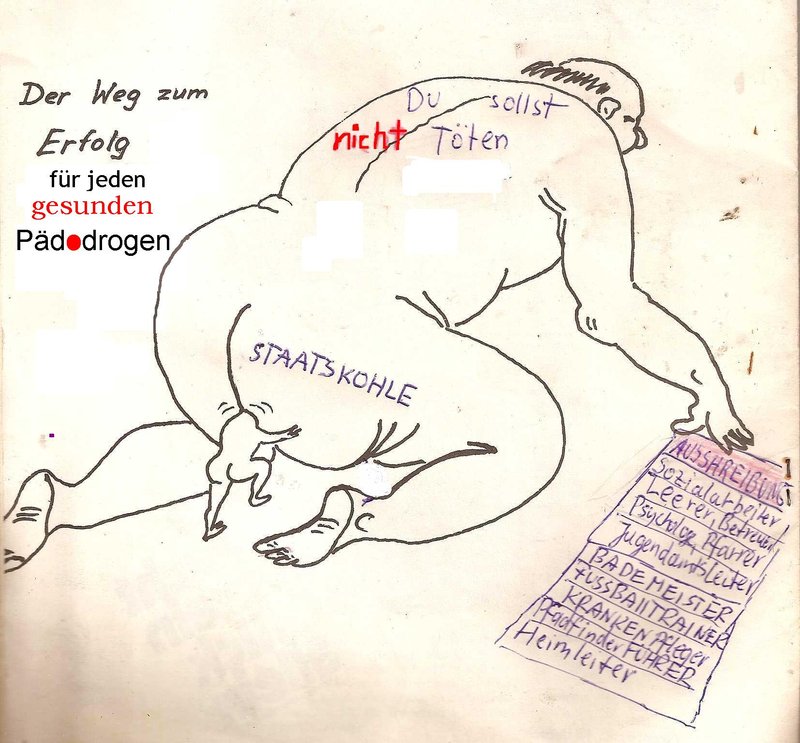 Der Weg zum
Erfolg
für jeden
gesunden
Pädodrogen
Du sollst
nicht Töten
STAATSKOHLE
AUSSHREIBUNG
Sozialarbeiter
Leerer, Betreuer,
Psycholog, Pfarrer
Jugendamtsleiter
BADEMEISTER
FUSSBAllTRAINER
KRANKENPfleger
PfadfinderFÜHRER
Heimleiter